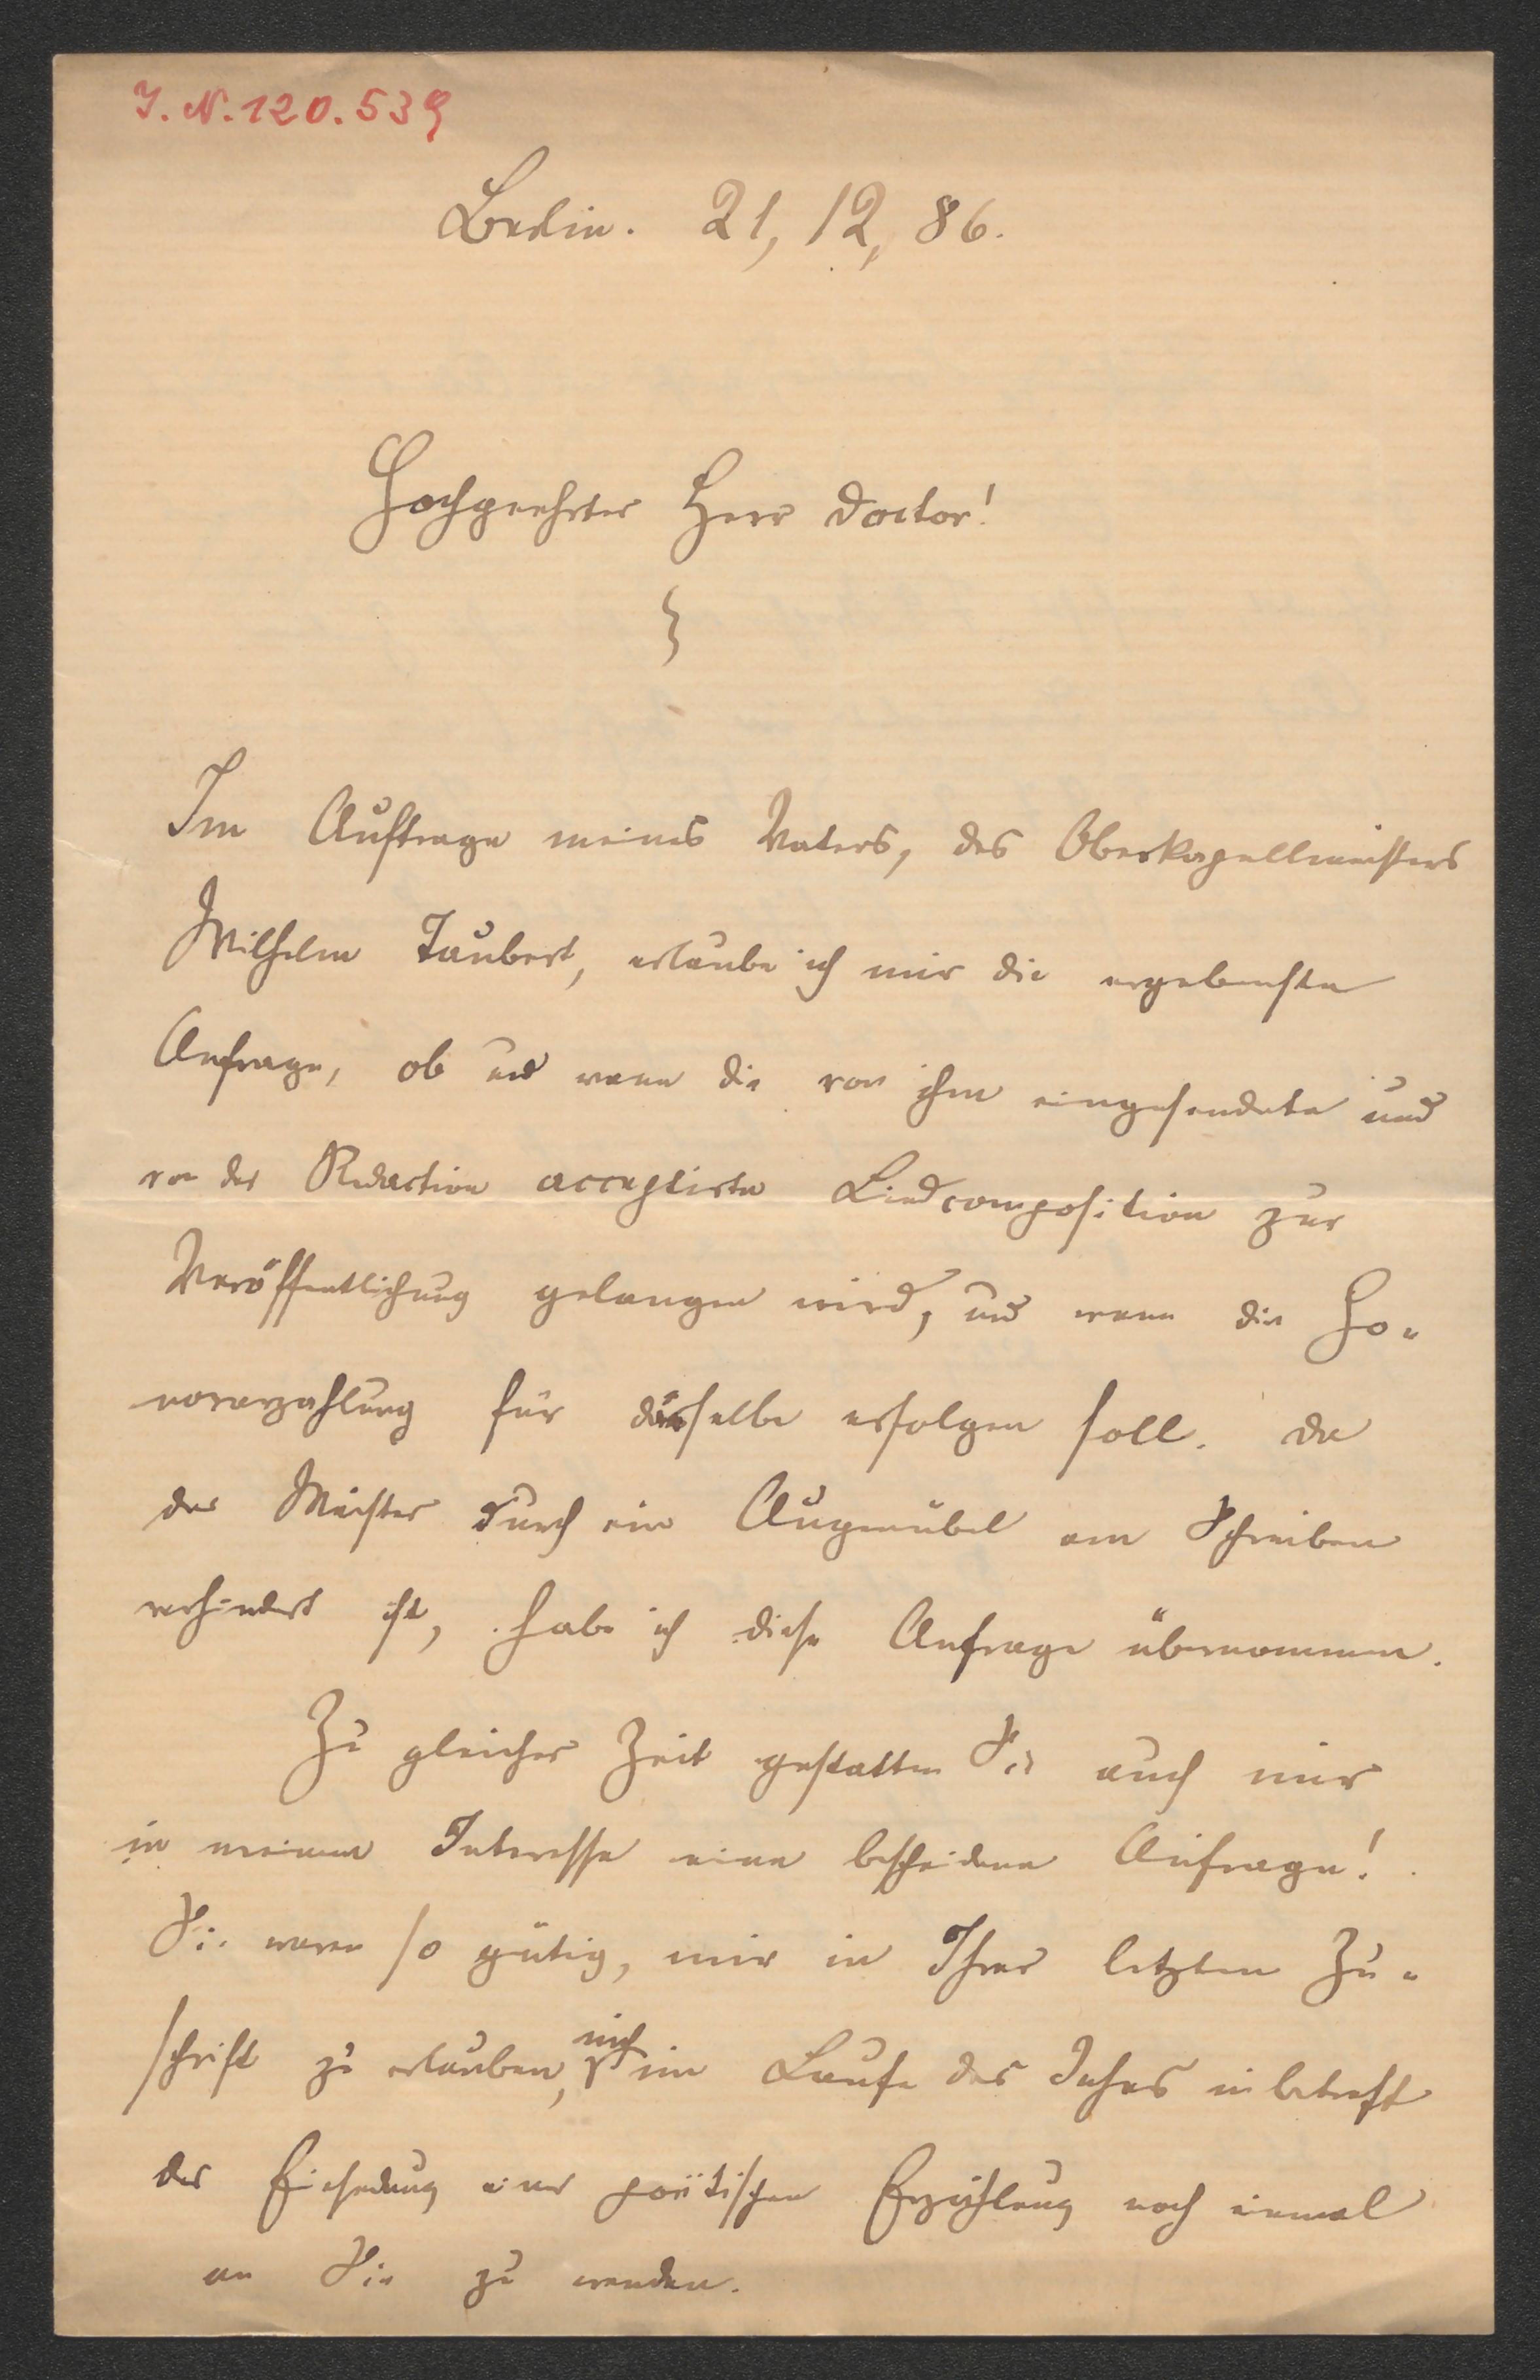 I. N. 120.539
Berlin. 21, 12, 86.
Hochgeehrter Herr Doctor!
Im Auftrage meines Vaters, des Oberkapellmeisters
Wilhelm Taubert, erlaube ich mir die ergebenste
Anfrage, ob und wann die von ihm eingesendete und
von der Redaction acceptirte Liedcomposition zur
Veröffentlichung gelangen wird, und wann die Ho-
norarzahlung für dieselbe erfolgen soll. Da
der Meister durch ein Augenübel am Schreiben
verhindert ist, habe ich diese Anfrage übernommen.
Zu gleicher Zeit gestatten Sie auch mir
in meinem Interesse eine bescheidene Anfrage!
Sie waren so gütig, mir in Ihrer letzten Zu-
schrift zu erlauben, mich im Laufe des Jahres in betreff
der Einsendung einer poëtischen Erzählung noch einmal
an Sie zu wenden.